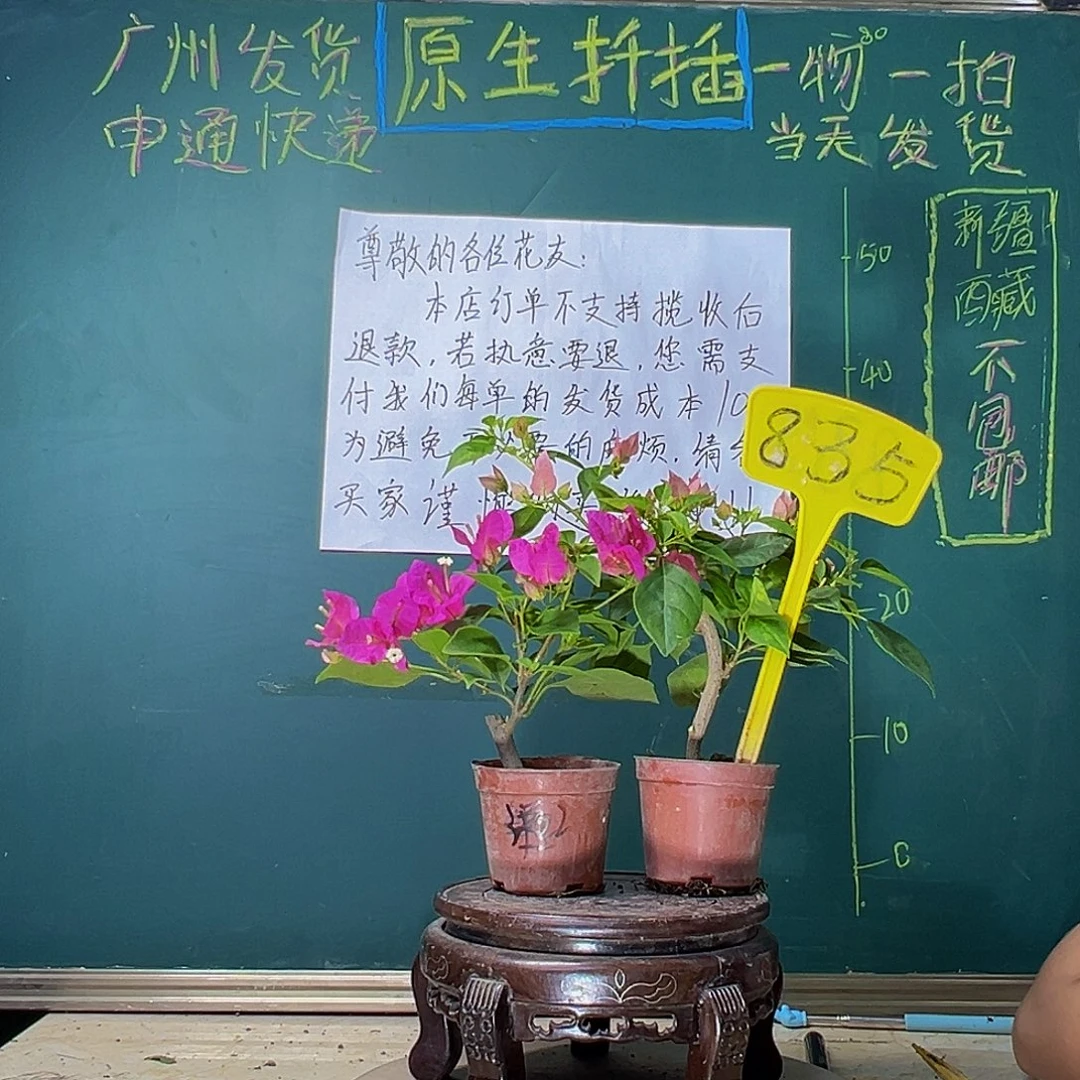 广州发货
申通快递
原生扦插
一物一拍
当天发货
80
50
40
20
10
0
新疆
西藏
不
包
邮
尊敬的各位花友:
本店订单不支持揽收后
退款,若执意要退,您需支
付我们每单的发货成本10
为避免 的麻烦,
买家谨
835